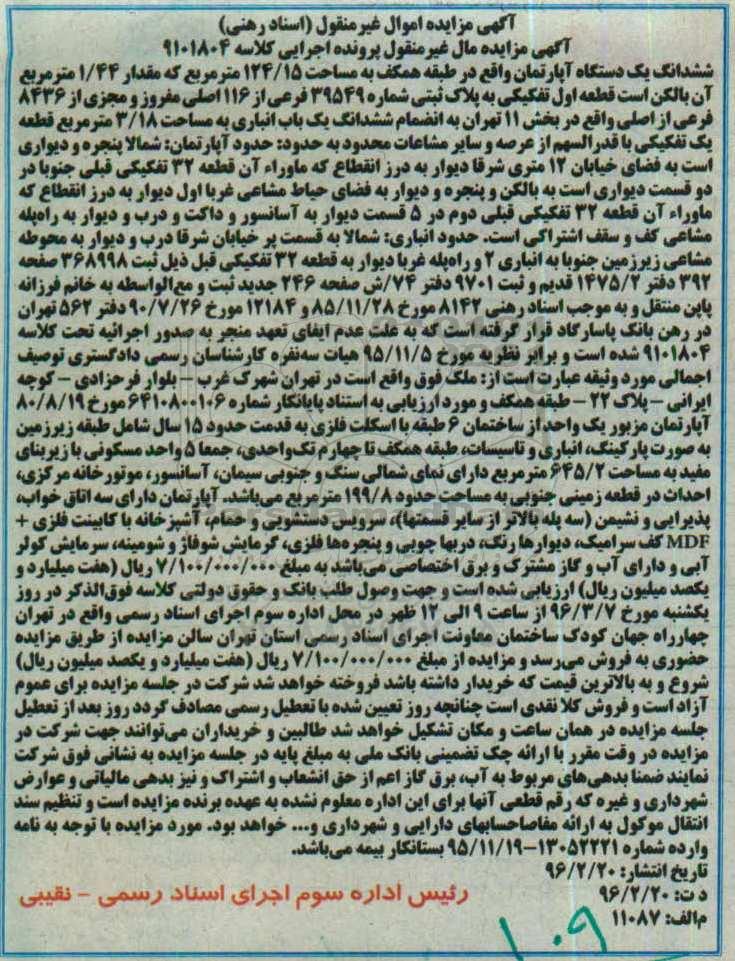 آگهی مزایده اموال غیرمنقول (اسناد رهنی)
آگهی مزایده مال غیرمنقول پرونده اجرایی کلاسه ۹۱۰۱۸۰۴
ششدانگ یک دستگاه آپارتمان واقع در طبقه همکف به مساحت ۱۲۴/۱۵ مترمربع که مقدار ۱/۴۴ مترمربع
آن بالکن است قطعه اول تفکیکی به پلاک ثبتی شماره ۳۹۵۴۹ فرعی از ۱۱۶ اصلی مفروز و مجزی از ۸۴۳۶
فرعی از اصلی واقع در بخش ۱۱ تهران به انضمام ششدانگ یک باب انباری به مساحت ۳/۱۸ مترمربع قطعه
یک تفکیکی با قدرالسهم از عرصه و سایر مشاعات محدود به حدود: حدود آپارتمان: شمالا پنجره و دیواری
است به فضای خیابان ۱۲ متری شرقا دیوار به درز انقطاع که ماوراء آن قطعه ۳۲ تفکیکی قبلی جنوبا در
دو قسمت دیواری است به بالکن و پنجره و دیوار به فضای حیاط مشاعی غربا اول دیوار به درز انقطاع که
ماوراء آن قطعه ۳۲ تفکیکی قبلی دوم در ۵ قسمت دیوار به آسانسور و داکت و درب و دیوار به راه‌پله
مشاعی کف و سقف اشتراکی است. حدود انباری: شمالا به قسمت پر خیابان شرقا درب و دیوار به محوطه
مشاعی زیرزمین جنوبا به انباری ۲ و راه‌پله غربا دیوار به قطعه ۳۲ تفکیکی قبل ذیل ثبت ۳۶۸۹۹۸ صفحه
۳۹۲ دفتر ۱۴۷۵/۲ قدیم و ثبت ۹۷۰۱ دفتر ۷۴/ش صفحه ۲۴۶ جدید ثبت و مع‌الواسطه به خانم فرزانه
پاپن منتقل و به موجب اسناد رهنی ۸۱۴۲ مورخ ۸۵/۱۱/۲۸ و ۱۲۱۸۴ مورخ ۹۰/۷/۲۶ دفتر ۵۶۲ تهران
در رهن بانک پاسارگاد قرار گرفته است که به علت عدم ایفای تعهد منجر به صدور اجرائیه تحت کلاسه
۹۱۰۱۸۰۴ شده است و برابر نظریه مورخ ۹۵/۱۱/۵ هیات سه‌نفره کارشناسان رسمی دادگستری توصیف
اجمالی مورد وثیقه عبارت است از: ملک فوق واقع است در تهران شهرک غرب – بلوار فرحزادی – کوچه
ایرانی – پلاک ۲۲ – طبقه همکف و مورد ارزیابی به استناد پایانکار شماره ۶۴۱۰۸۰۰۱۰۶ مورخ ۸۰/۸/۱۹
آپارتمان مزبور یک واحد از ساختمان ۶ طبقه با اسکلت فلزی به قدمت حدود ۱۵ سال شامل طبقه زیرزمین
به صورت پارکینگ، انباری و تاسیسات، طبقه همکف تا چهارم تک‌واحدی، جمعا ۵ واحد مسکونی با زیربنای
مفید به مساحت ۶۴۵/۲ مترمربع دارای نمای شمالی سنگ و جنوبی سیمان، آسانسور، موتورخانه مرکزی،
احداث در قطعه زمینی جنوبی به مساحت حدود ۱۹۹/۸ مترمربع می‌باشد. آپارتمان دارای سه اتاق خواب،
پذیرایی و نشیمن (سه پله بالاتر از سایر قسمتها)، سرویس دستشویی و حمام، آشپزخانه با کابینت فلزی +
MDF کف سرامیک، دیوارها رنگ، دربها چوبی و پنجره‌ها فلزی، گرمایش شوفاژ و شومینه، سرمایش کولر
آبی و دارای آب و گاز مشترک و برق اختصاصی می‌باشد به مبلغ ۷/۱۰۰/۰۰۰/۰۰۰ ریال (هفت میلیارد و
یکصد میلیون ریال) ارزیابی شده است و جهت وصول طلب بانک و حقوق دولتی کلاسه فوق‌الذکر در روز
یکشنبه مورخ ۹۶/۳/۷ از ساعت ۹ الی ۱۲ ظهر در محل اداره سوم اجرای اسناد رسمی واقع در تهران
چهارراه جهان کودک ساختمان معاونت اجرای اسناد رسمی استان تهران سالن مزایده از طریق مزایده
حضوری به فروش می‌رسد و مزایده از مبلغ ۷/۱۰۰/۰۰۰/۰۰۰ ریال (هفت میلیارد و یکصد میلیون ریال)
شروع و به بالاترین قیمت که خریدار داشته باشد فروخته خواهد شد شرکت در جلسه مزایده برای عموم
آزاد است و فروش کلا نقدی است چنانچه روز تعیین شده با تعطیل رسمی مصادف گردد روز بعد از تعطیل
جلسه مزایده در همان ساعت و مکان تشکیل خواهد شد طالبین و خریداران می‌توانند جهت شرکت در
مزایده در وقت مقرر با ارائه چک تضمینی بانک ملی به مبلغ پایه در جلسه مزایده به نشانی فوق شرکت
نمایند ضمنا بدهی‌های مربوط به آب، برق گاز اعم از حق انشعاب و اشتراک و نیز بدهی مالیاتی و عوارض
شهرداری و غیره که رقم قطعی آنها برای این اداره معلوم نشده به عهده برنده مزایده است و تنظیم سند
انتقال موکول به ارائه مفاصاحسابهای دارایی و شهرداری و... خواهد بود. مورد مزایده با توجه به نامه
وارده شماره ۱۳۰۵۲۲۲۱–۹۵/۱۱/۱۹ بستانکار بیمه می‌باشد.
تاریخ انتشار: ۹۶/۲/۲۰
د ت: ۹۶/۲/۲۰
رئیس اداره سوم اجرای اسناد رسمی – نقیبی
م‌الف: ۱۱۰۸۷
۱۰۹